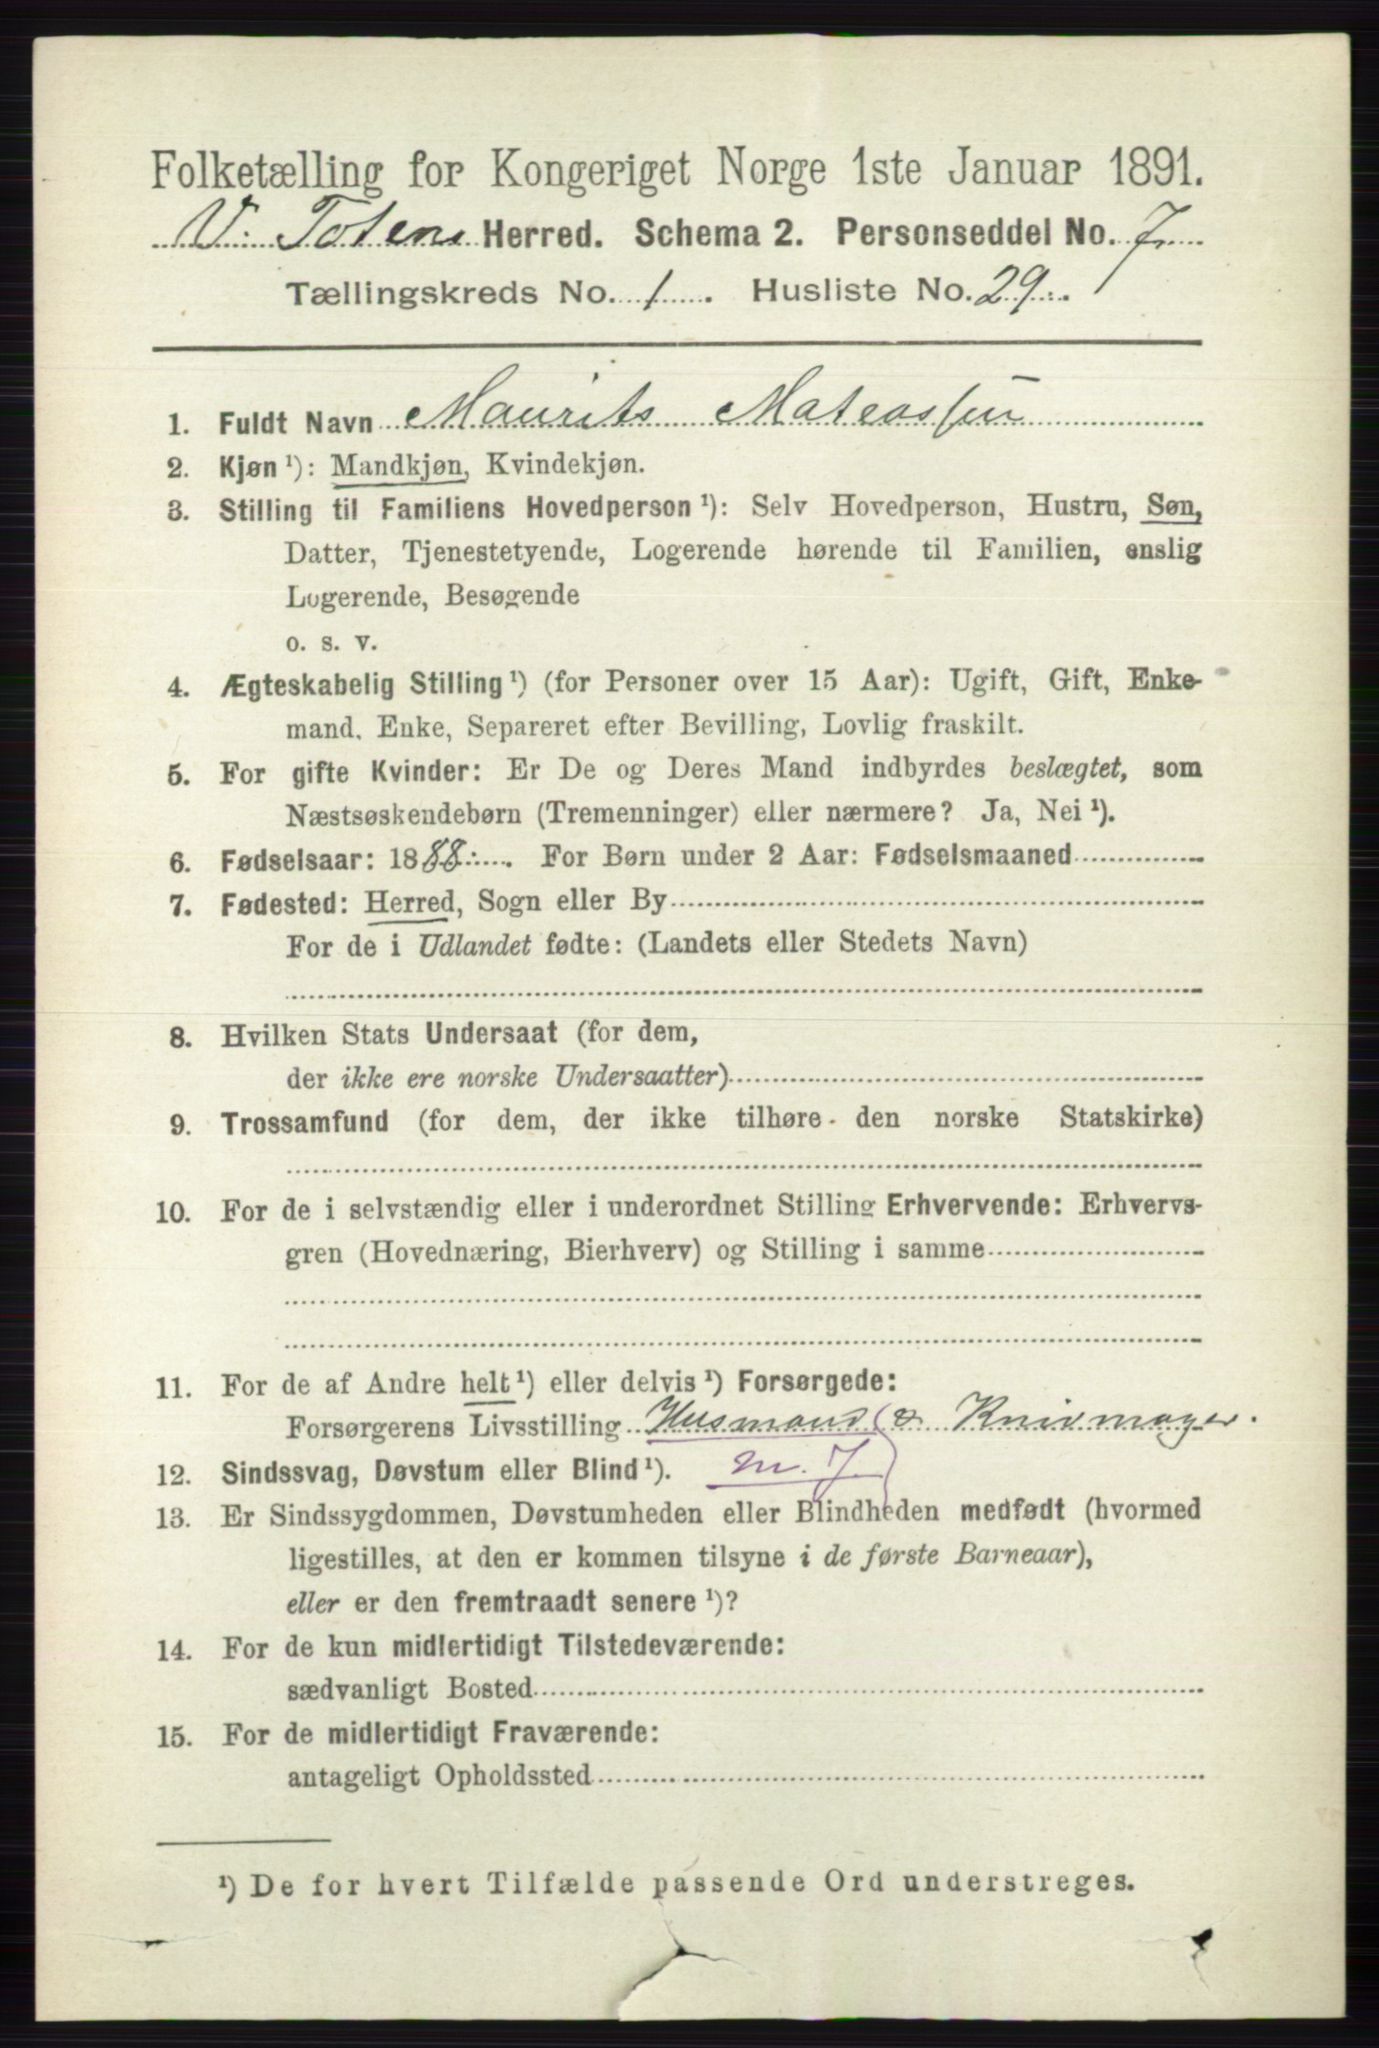 Folketælling for Kongeriget Norge 1ste Januar 1891.
V. Totens Herred. Schema 2. Personseddel No. 7.
Tællingskreds No. 1. Husliste No. 29.
1. Fuldt Navn Maurits Mateassen
2. Kjøn ¹): Mandkjøn, Kvindekjøn.
3. Stilling til Familiens Hovedperson ¹): Selv Hovedperson, Hustru, Søn,
Datter, Tjenestetyende, Logerende hørende til Familien, enslig
Logerende, Besøgende
o. s. v.
4. Ægteskabelig Stilling ¹) (for Personer over 15 Aar): Ugift, Gift, Enke-
mand, Enke, Separeret efter Bevilling, Lovlig fraskilt.
5. For gifte Kvinder: Er De og Deres Mand indbyrdes beslægtet, som
Næstsøskendebørn (Tremenninger) eller nærmere? Ja, Nei ¹).
6. Fødselsaar: 1888. For Børn under 2 Aar: Fødselsmaaned
7. Fødested: Herred, Sogn eller By
For de i Udlandet fødte: (Landets eller Stedets Navn)
8. Hvilken Stats Undersaat (for dem,
der ikke ere norske Undersaatter)
9. Trossamfund (for dem, der ikke tilhøre den norske Statskirke)
10. For de i selvstændig eller i underordnet Stilling Erhvervende: Erhvervs-
gren (Hovednæring, Bierhverv) og Stilling i samme
11. For de af Andre helt ¹) eller delvis ¹) Forsørgede:
Forsørgerens Livsstilling Husmand & Knivmager.
12. Sindssvag, Døvstum eller Blind ¹). m. J.
13. Er Sindssygdommen, Døvstumheden eller Blindheden medfødt (hvormed
ligestilles, at den er kommen tilsyne i de første Barneaar),
eller er den fremtraadt senere ¹)?
14. For de kun midlertidigt Tilstedeværende:
sædvanligt Bosted
15. For de midlertidigt Fraværende:
antageligt Opholdssted
¹) De for hvert Tilfælde passende Ord understreges.